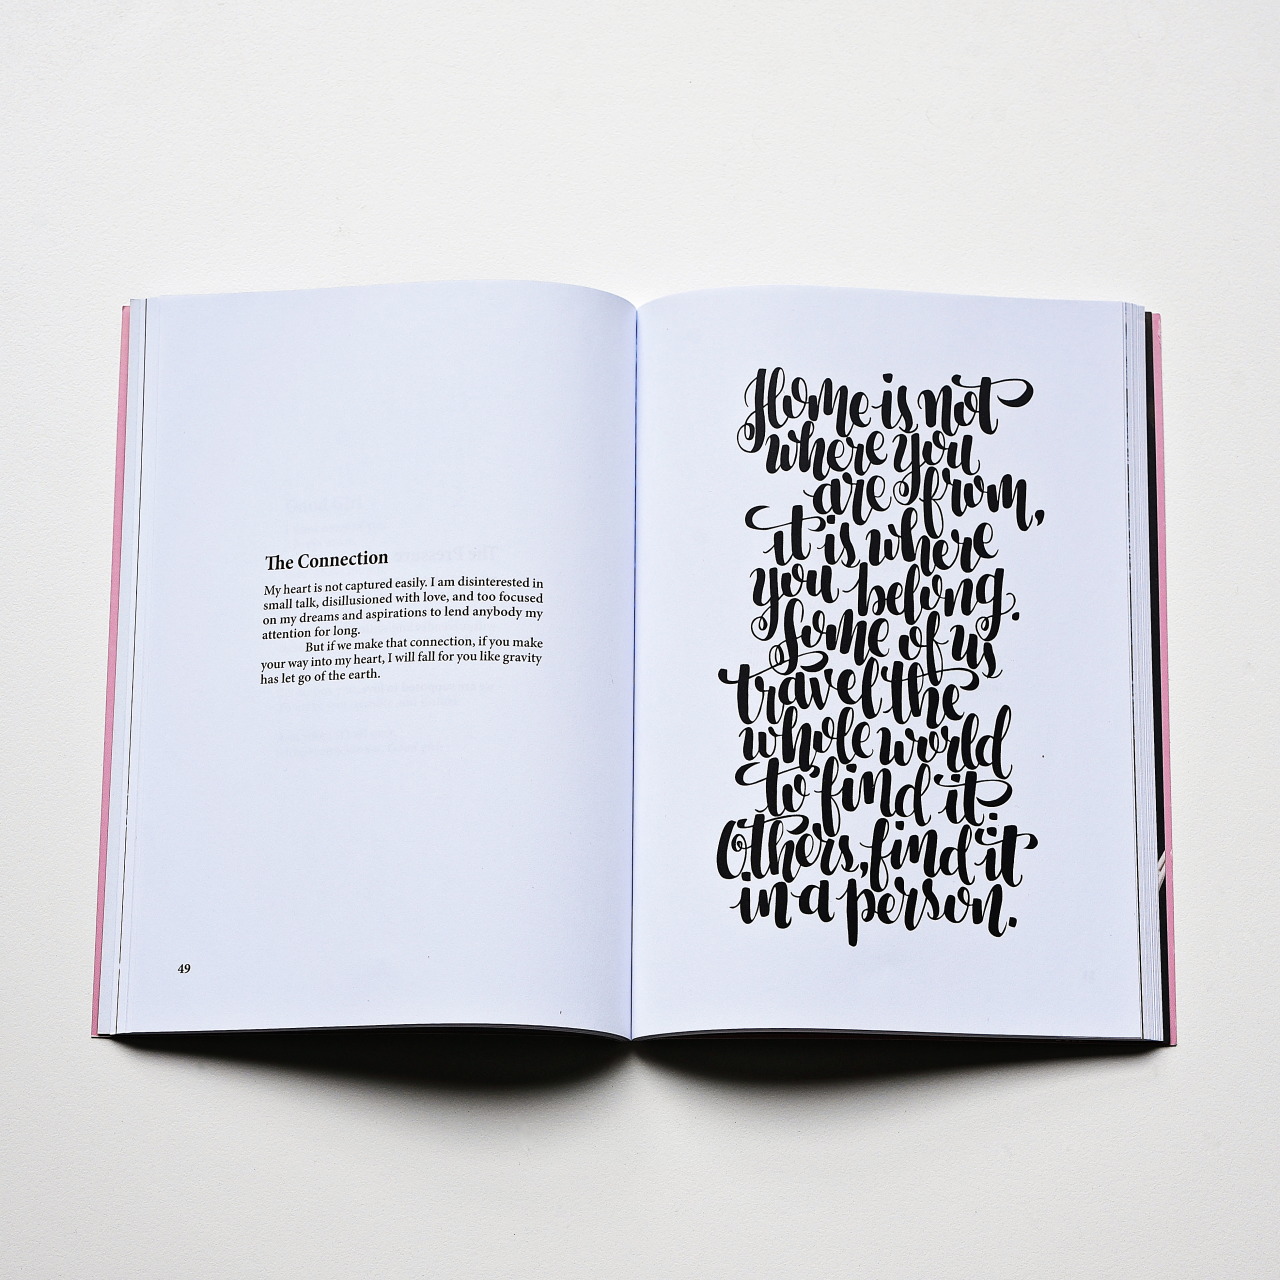 The Connection
My heart is not captured easily. I am disinterested in
small talk, disillusioned with love, and too focused
on my dreams and aspirations to lend anybody my
attention for long.
But if we make that connection, if you make
your way into my heart, I will fall for you like gravity
has let go of the earth.
49
Home is not
where you
are from,
it is where
you belong.
Some of us
travel the
whole world
to find it.
Others, find it
in a person.